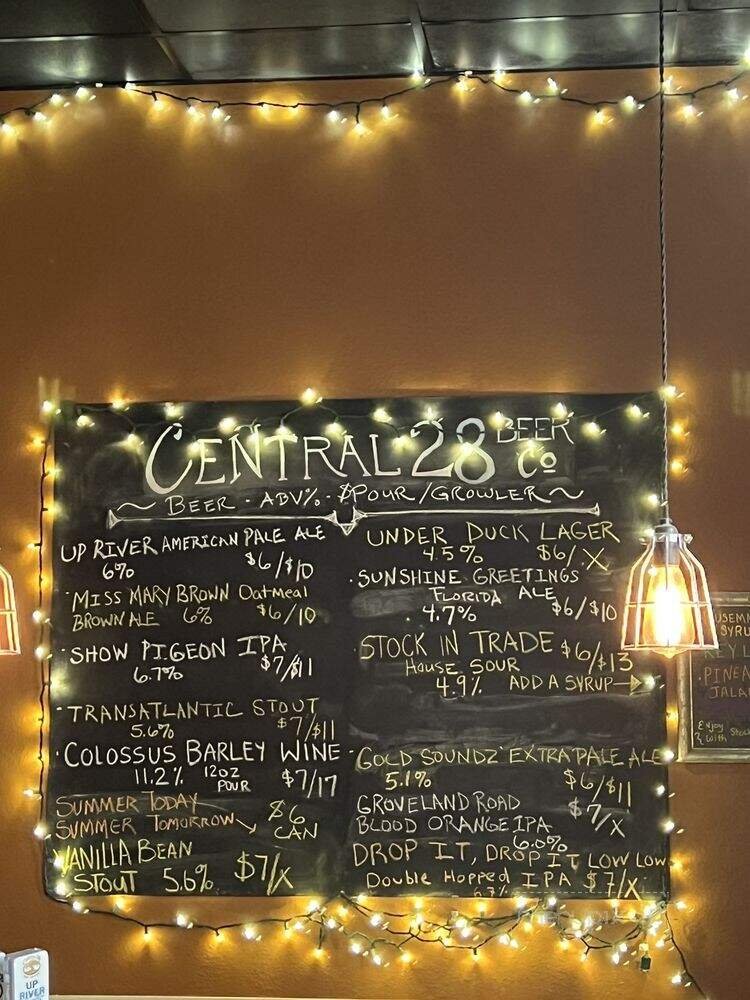 CENTRAL 28 BEER Co
~ BEER - ABV% - $POUR/GROWLER ~
UP RIVER AMERICAN PALE ALE
6% $6/$10
· MISS MARY BROWN Oatmeal
BROWN ALE 6% $6/10
· SHOW PIGEON IPA
6.7% $7/$11
· TRANSATLANTIC STOUT
5.6% $7/$11
· COLOSSUS BARLEY WINE
11.2% 12oz POUR $7/17
SUMMER TODAY
SUMMER TOMORROW $6 CAN
VANILLA BEAN
STOUT 5.6% $7/X
UNDER DUCK LAGER
4.5% $6/X
· SUNSHINE GREETINGS
FLORIDA ALE
4.7% $6/$10
· STOCK IN TRADE $6/$13
HOUSE SOUR
4.9% ADD A SYRUP
· GOLD SOUNDZ EXTRA PALE ALE
5.1% $6/$11
GROVELAND ROAD
BLOOD ORANGE IPA $7/X
6.0%
DROP IT, DROP IT LOW LOW
Double Hopped IPA $7/X
SYRU
JALA
Enjoy
With Stock
UP
RIVER